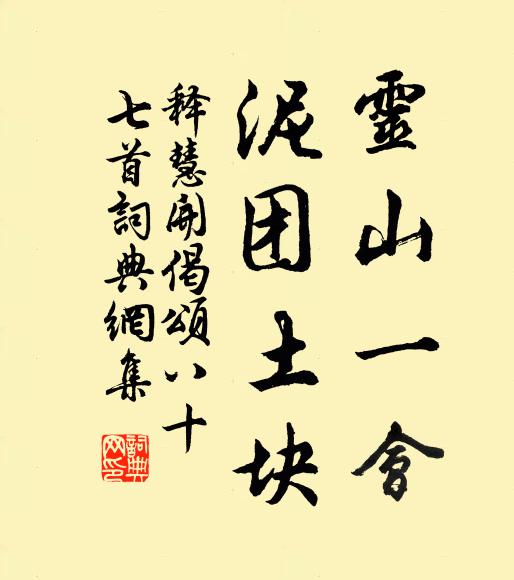 靈山一會
泥团土块
释慧開偈頌八十
七首詞典網集
詞典
网印